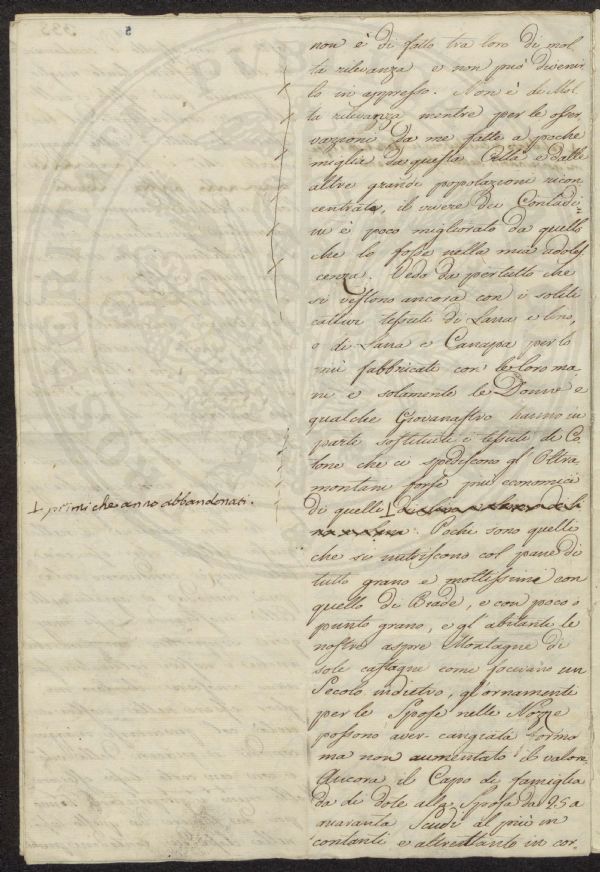 5
non è di fatto tra loro di mol
ta rilevanza e non può diveni
lo in appresso. Non è di Mol
ta rilevanza mentre per le osser
vazioni da me fatte a poche
miglia da questa Città e dalle
altre grandi popolazioni ricon
centrate, il vivere dei Contadi=
ni è poco migliorato da quello
che lo fosse nella mia adoles
cenza. Vedo da pertutto che
si vestono ancora con i soliti
cattivi tessuti di Lana e lino,
o di Lana e Canapa per lo
più fabbricati con le loro ma
ni e solamente le Donne e
qualche Giovanastro hanno in
parte sostituiti i tessuti di Co
tone che ci spediscono gl'Oltra
montani forse più economici
di quelli
I primi che anno abbandonati.
Pochi sono quelli
che si nutriscono col pane di
tutto grano e moltissimi con
quello di Biade, e con poco o
punto grano, e gl'abitanti le
nostre aspre Montagne di
sole castagne come facevano un
Secolo indietro, gl'ornamenti
per le Spose nelle Nozze
possono aver cangiata forma
ma non aumentato il valore.
Ancora il Capo di famiglia
da di dote alla Sposa da 25 a
quaranta Scudi al più in
contanti e altrettanto in cor-